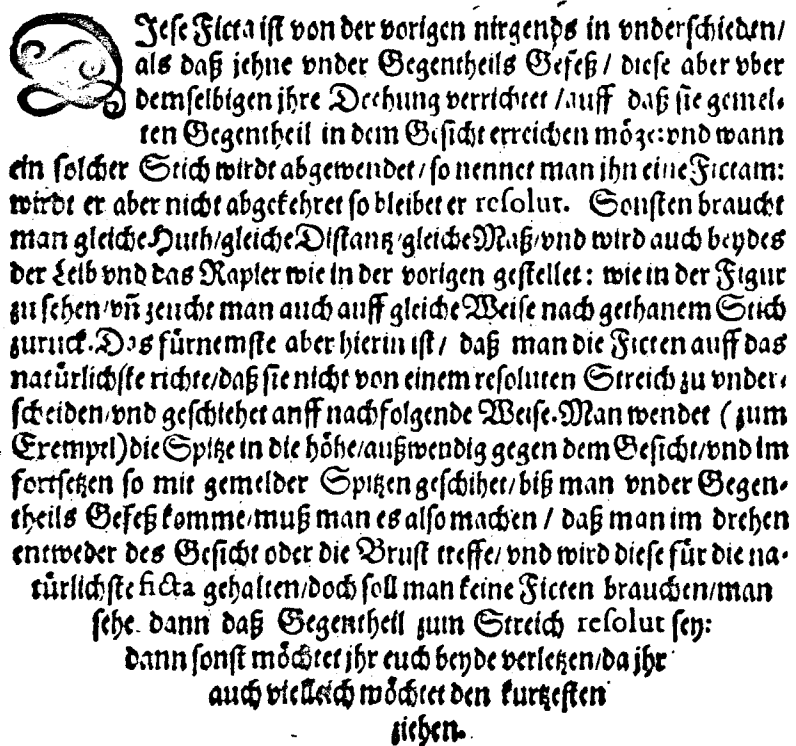 DJese Ficta ist von der vorigen nirgends in vnderschieden/
als daß jehne vnder Gegentheils Gefeß / diese aber vber
demselbigen jhre Drehung verrichtet / auff daß sie gemel-
ten Gegentheil in dem Gesicht erreichen möge: vnd wann
ein solcher Stich wirdt abgewendet / so nennet man ihn eine Fictam:
wirdt er aber nicht abgekehret so bleibet er resolut. Sonsten braucht
man gleiche Huth / gleiche Distantz / gleiche Maß / vnd wird auch beydes
der Leib vnd das Rapier wie in der vorigen gestellet: wie in der Figur
zu sehen / vñ zeucht man auch auff gleiche Weise nach gethanem Stich
zuruck. Das fürnemste aber hierin ist / daß man die Ficten auff das
natürlichste richte / daß sie nicht von einem resoluten Streich zu vnder-
scheiden / vnd geschiehet anff nachfolgende Weise. Man wendet (zum
Exempel) die Spitze in die höhe / außwendig gegen dem Gesicht / vnd im
fortsetzen so mit gemelder Spitzen geschihet / biß man vnder Gegen-
theils Gefeß komme / muß man es also machen / daß man im drehen
entweder des Gesicht oder die Brust treffe / vnd wird diese für die na-
türlichste ficta gehalten / doch soll man keine Ficten brauchen / man
sehe dann daß Gegentheil zum Streich resolut sey:
dann sonst möchtet jhr euch beyde verletzen / da jhr
auch vielleich möchtet den kurtzesten
ziehen.